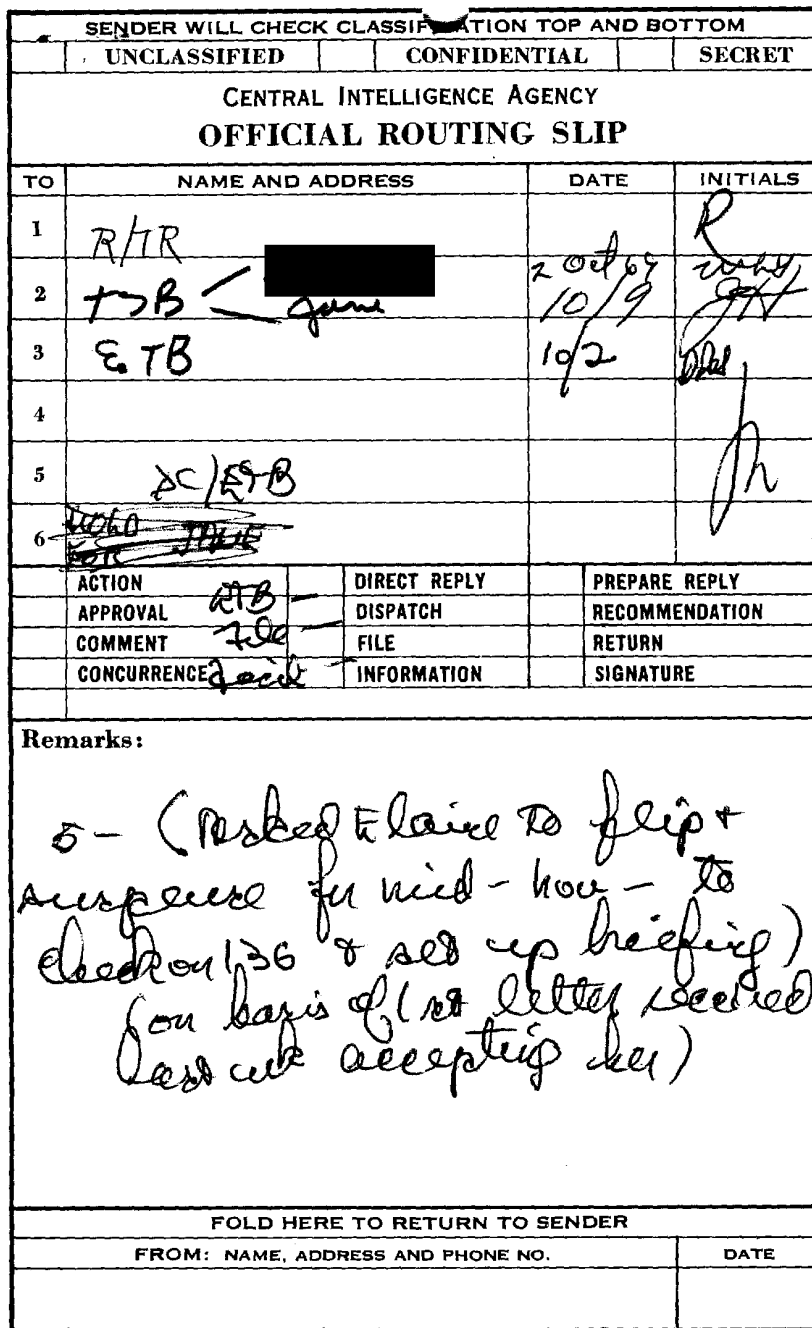 SENDER WILL CHECK CLASSIFICATION TOP AND BOTTOM
UNCLASSIFIED CONFIDENTIAL SECRET
CENTRAL INTELLIGENCE AGENCY
OFFICIAL ROUTING SLIP
TO NAME AND ADDRESS DATE INITIALS
1 R/TR R
2 Oct 69
2 TSB June 10/9 JH
3 ETB 10/2
4
5 DC/ETB
6 HOLD
FOR JANE
ACTION DIRECT REPLY PREPARE REPLY
APPROVAL ETB DISPATCH RECOMMENDATION
COMMENT File FILE RETURN
CONCURRENCE INFORMATION SIGNATURE
Remarks:
5- (Asked Elaine to flip +
suspense for mid-nov- to
check on 136 & set up briefing)
(on basis of 1st letter received
last wk accepting her)
FOLD HERE TO RETURN TO SENDER
FROM: NAME, ADDRESS AND PHONE NO. DATE